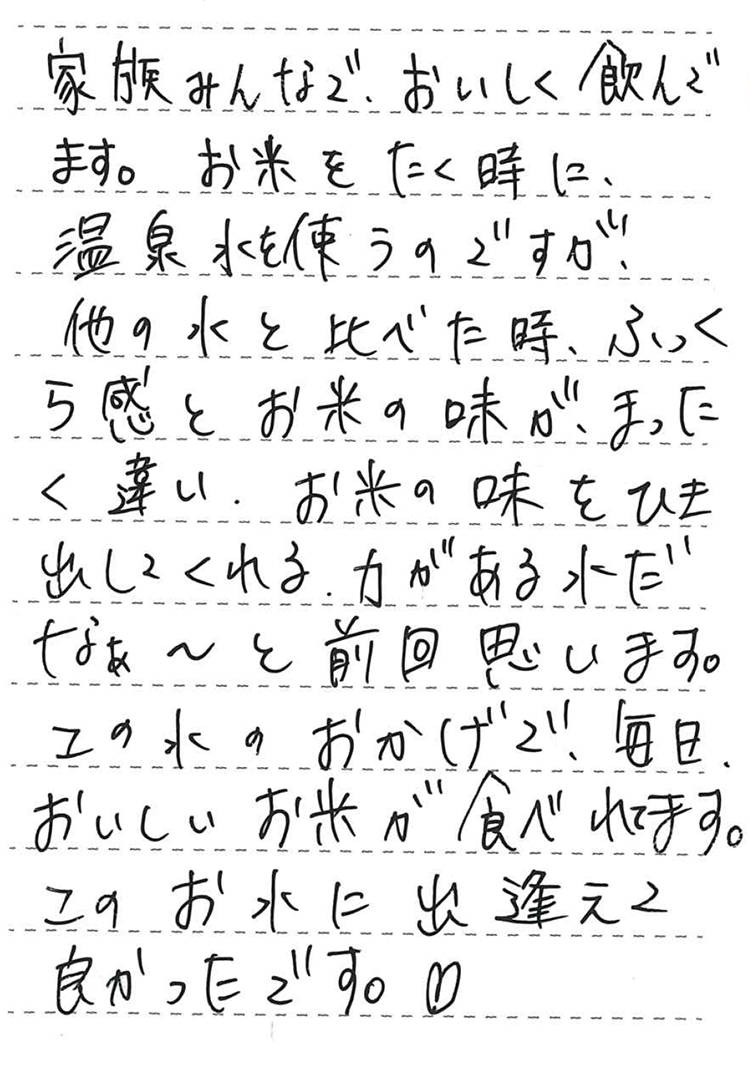 家族みんなで、おいしく飲んで
ます。お米をたく時に、
温泉水を使うのですが、
他の水と比べた時、ふっく
ら感とお米の味が、まった
く違い、お米の味をひき
出してくれる、力がある水だ
なぁ～と前回思います。
この水のおかげで、毎日、
おいしいお米が食べれてます。
このお水に出逢えて
良かったです。